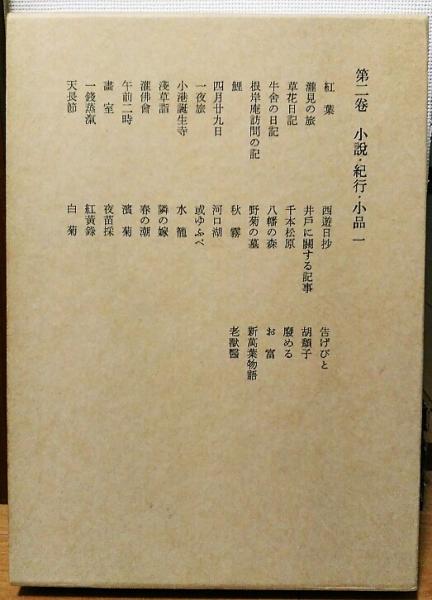 第二卷 小說・紀行・小品 一
紅葉
瀧見の旅
草花日記
牛舍の日記
根岸庵訪問の記
鯉
四月廿九日
一夜旅
小港誕生寺
淺草詣
灌佛會
午前二時
畫室
一錢蒸汽
天長節
西遊日抄
井戶に關する記事
千本松原
八幡の森
野菊の墓
秋霧
河口湖
或ゆふべ
水籠
隣の嫁
春の潮
濱菊
夜苗採
紅黃錄
白菊
告げびと
胡頽子
廢める
お富
新萬葉物語
老獸醫